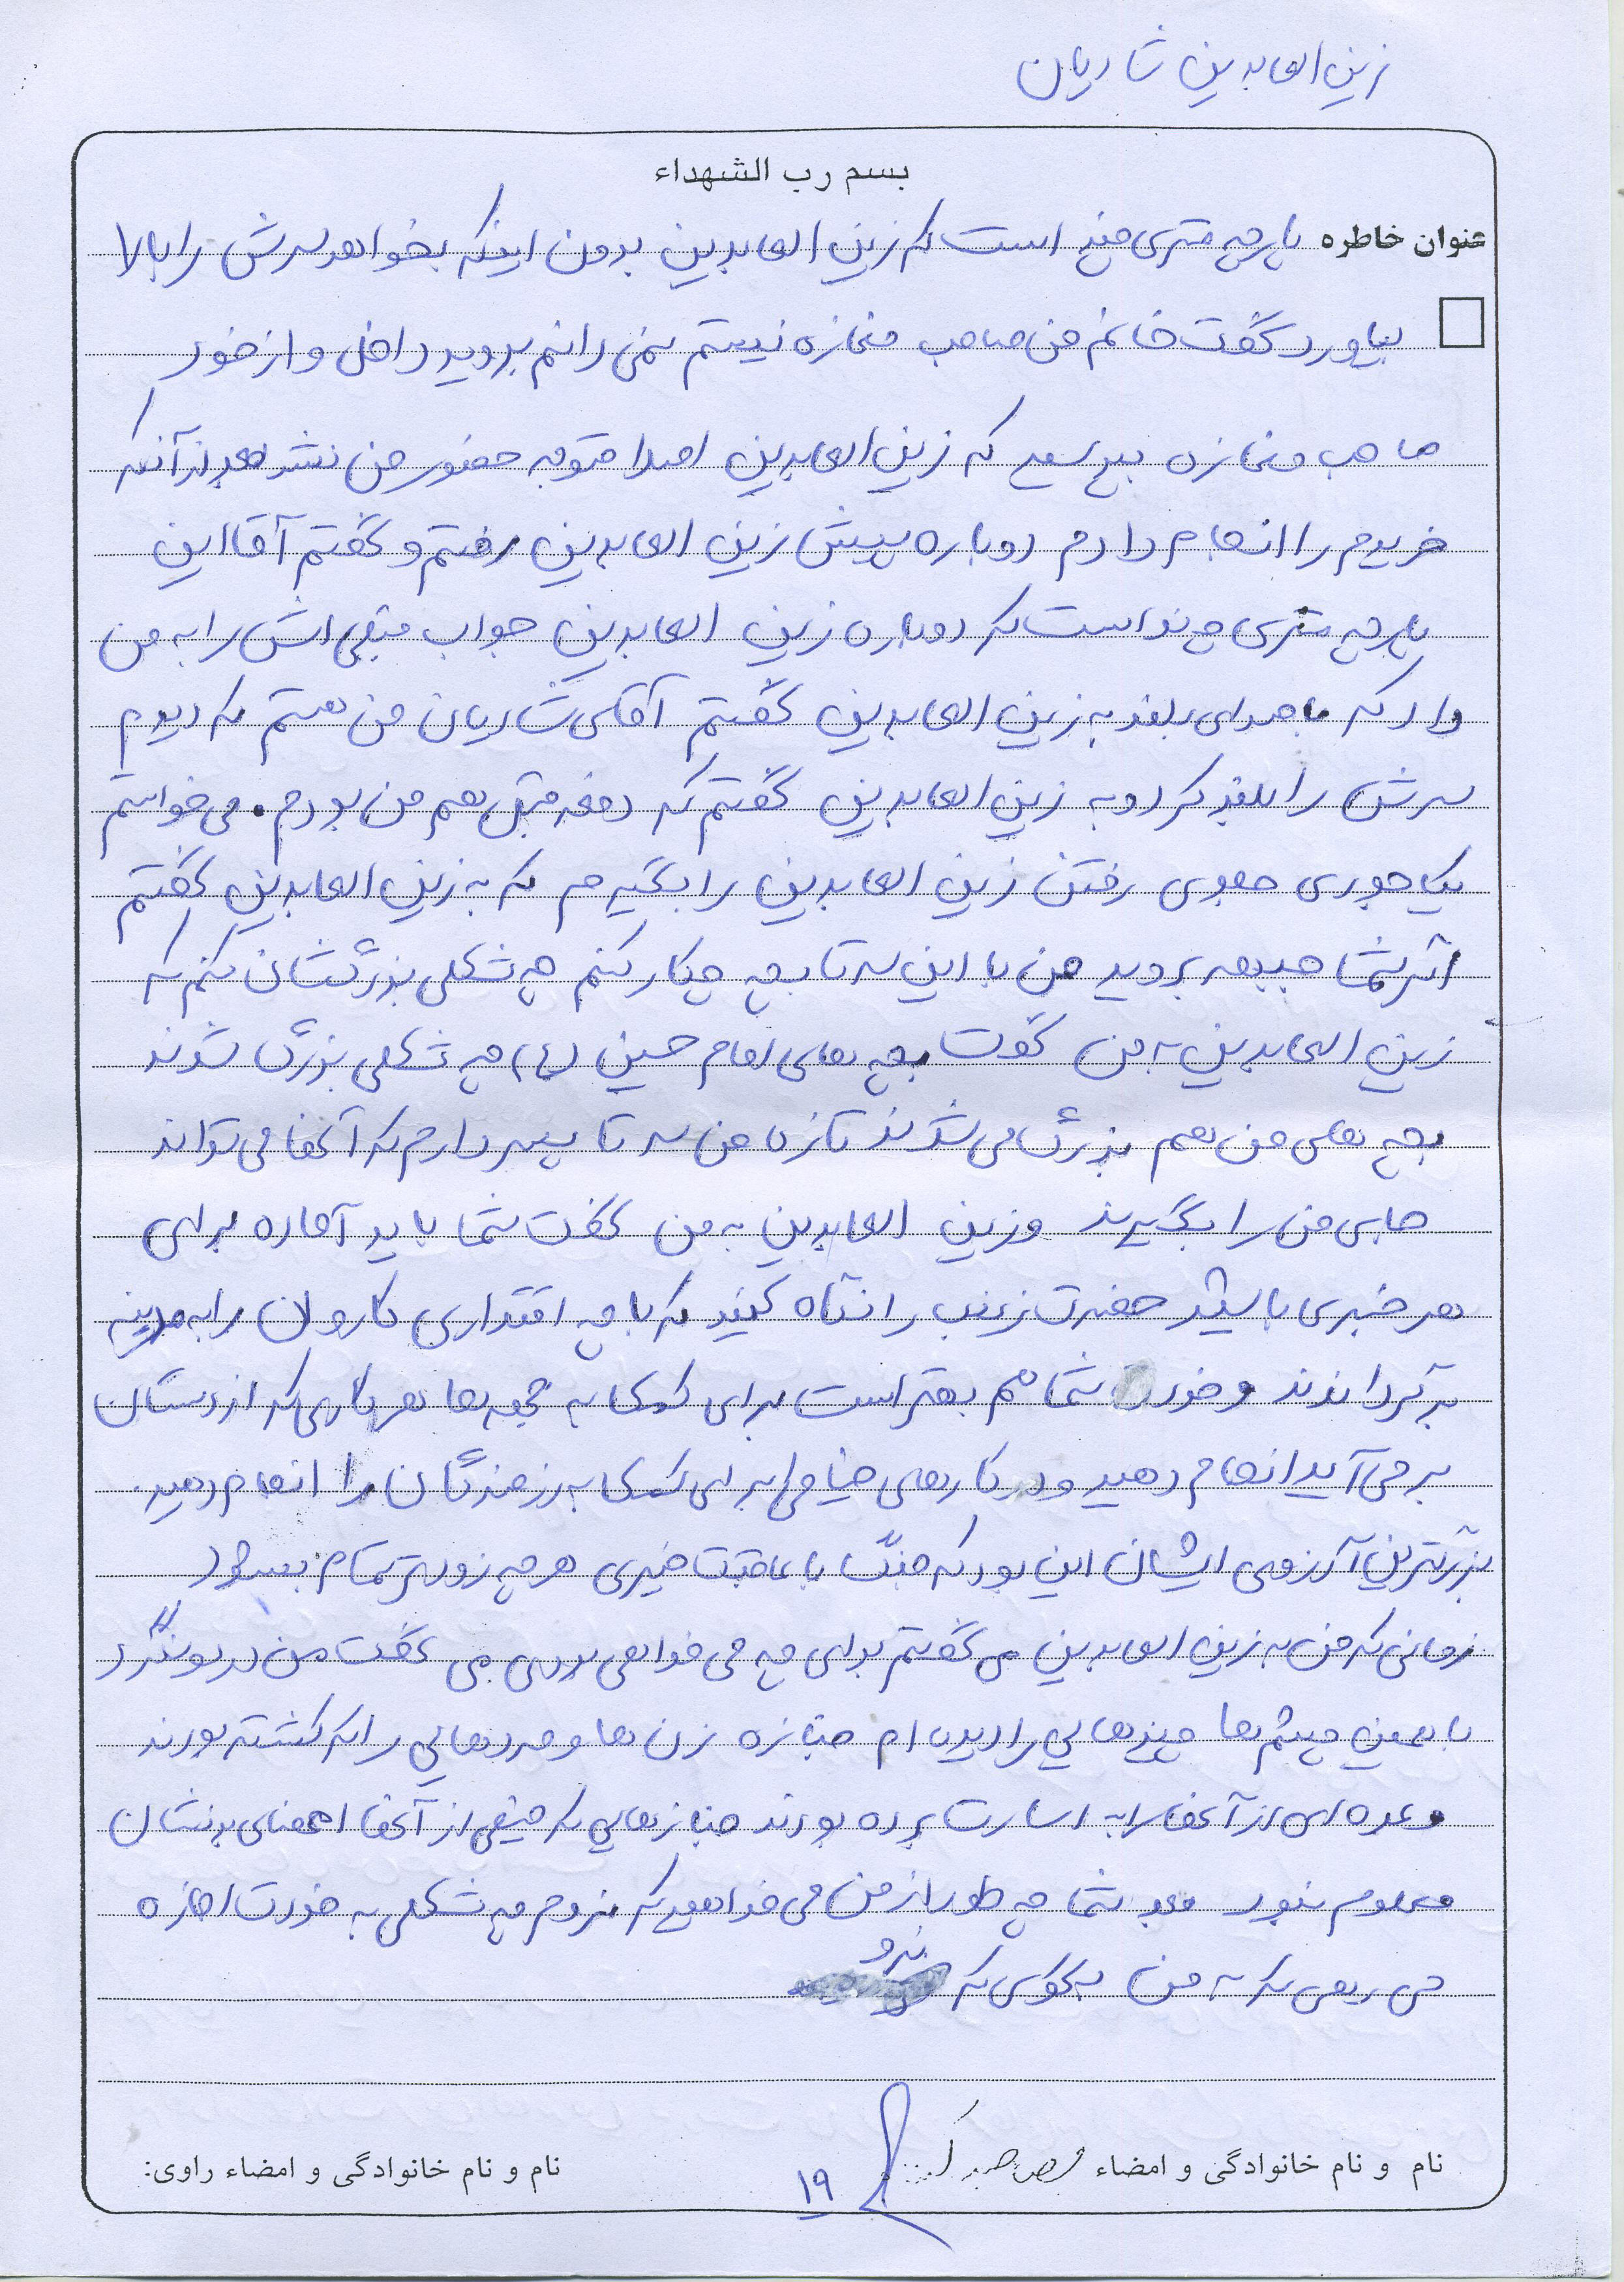 زین العابدین شاریان
بسم رب الشهداء
عنوان خاطره پارچه متری چند است که زین العابدین بدون اینکه بخواهد سرش را بالا
بیاورد گفت خانم من صاحب مغازه نیستم نمی دانم بروید داخل و از خود
صاحب مغازه بپرسید که زین العابدین اصلا متوجه حضور من نشد بعد از آنکه
خریدم را انجام دادم دوباره پیش زین العابدین رفتم و گفتم آقا این
پارچه متری چند است که دوباره زین العابدین جواب قبلی اش را به من
داد که با صدای بلند به زین العابدین گفتم آقای شاریان من هستم که دیدم
سرش را بلند کرد و به زین العابدین گفتم که دفعه قبل هم من بودم. می خواستم
یک جوری جلوی رفتن زین العابدین را بگیرم که به زین العابدین گفتم
اگر شما جبهه بروید من با این سه تا بچه چکار کنم چه شکلی بزرگشان کنم که
زین العابدین به من گفت بچه های امام حسین (ع) چه شکلی بزرگ شدند
بچه های من هم بزرگ می شوند تازه من سه تا پسر دارم که آنها می تواند
جای من را بگیرند و زین العابدین به من گفت شما باید آماده برای
هر خبری باشید حضرت زینب را نگاه کنید که با چه اقتداری کاروان را به مدینه
برگرداندند و خود شما هم بهتر است برای کمک به جبهه ها هر کاری که از دستتان
بر می آید انجام دهید و در کارهای خیاطی برای کمک به رزمندگان را انجام دهید.
بزرگترین آرزوی ایشان این بود که جنگ با عاقبت خیری هر چه زودتر تمام بشود
زمانی که من به زین العابدین می گفتم برای چه می خواهی بروی می گفت من در سوسنگرد
با همین چشم ها چیزهایی را دیده ام جنازه زن ها و مردهایی را که کشته بودند
و عده ای از آنها را به اسارت برده بودند جنازهایی که خیلی از آنها اعضای بدنشان
معلوم نبود بعد شما چه طور از من می خواهید که نروم چه شکلی به خودت اجازه
می دهی که به من بگویی که نرو
نام و نام خانوادگی و امضاء
نام و نام خانوادگی و امضاء راوی:
۱۹